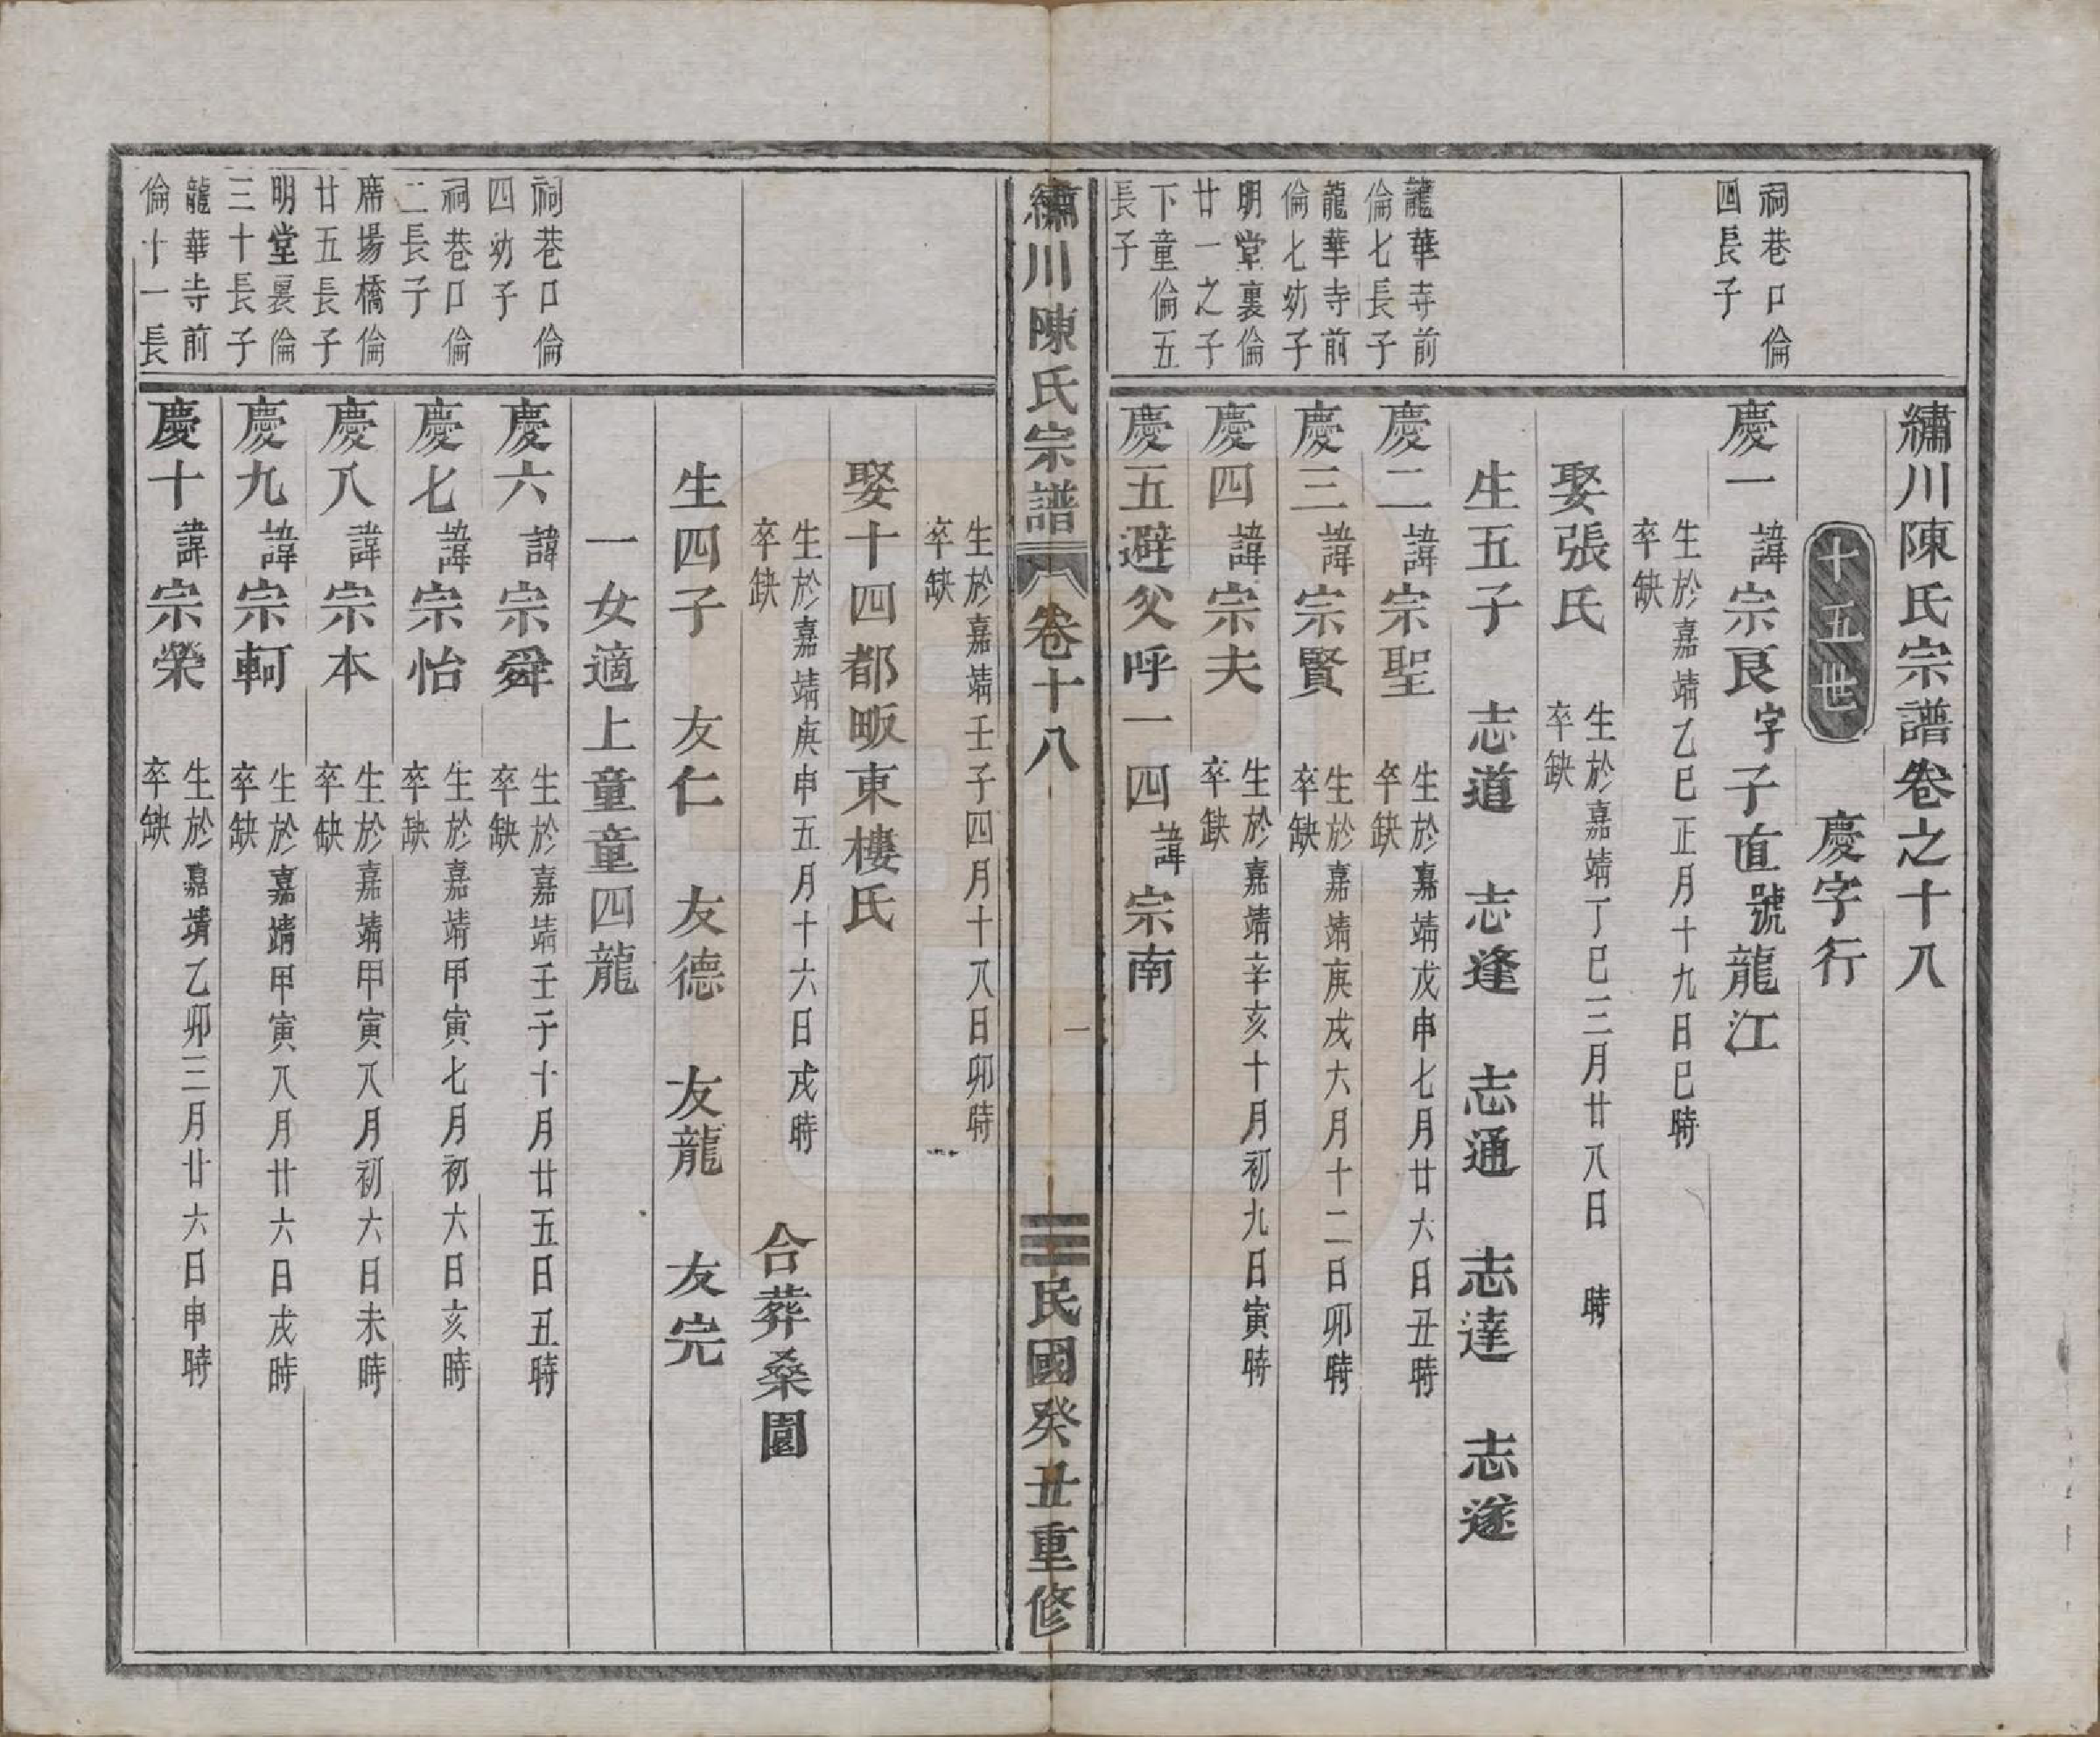 繡川陳氏宗譜卷之十八
十五世
慶字行
祠巷口倫
四長子
慶一諱宗良字子直號龍江
生於嘉靖乙巳正月十九日巳時
卒缺
娶張氏
生於嘉靖丁巳三月廿八日 時
卒缺
生五子 志道 志逢 志通 志達 志遂
龍華寺前
倫七長子
慶二諱宗聖
生於嘉靖戊申七月廿六日丑時
卒缺
龍華寺前
倫七幼子
慶三諱宗賢
生於嘉靖庚戌六月十二日卯時
卒缺
明堂裏倫
廿一之子
慶四諱宗夫
生於嘉靖辛亥十月初九日寅時
卒缺
下童倫五
長子
慶五避父呼一四諱宗南
繡川陳氏宗譜
卷十八
一
民國癸丑重修
生於嘉靖壬子四月十八日卯時
卒缺
娶十四都畈東樓氏
生於嘉靖庚申五月十六日戌時
卒缺
合葬桑園
生四子 友仁 友德 友龍 友完
一女適上童童四龍
祠巷口倫
四幼子
慶六諱宗舜
生於嘉靖壬子十月廿五日丑時
卒缺
祠巷口倫
二長子
慶七諱宗怡
生於嘉靖甲寅七月初六日亥時
卒缺
席場橋倫
廿五長子
慶八諱宗本
生於嘉靖甲寅八月初六日未時
卒缺
明堂裏倫
三十長子
慶九諱宗軻
生於嘉靖甲寅八月廿六日戌時
卒缺
龍華寺前
倫十一長
慶十諱宗榮
生於嘉靖乙卯三月廿六日申時
卒缺